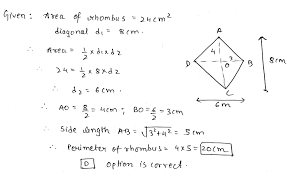 Given : Area of rhombus = 24 cm²
diagonal d₁ = 8 cm.
∴ Area = 1/2 × d₁ × d₂
∴ 24 = 1/2 × 8 × d₂
∴ d₂ = 6 cm.
∴ AO = 8/2 = 4cm ; BO = 6/2 = 3cm
∴ Side length AB = √3²+4² = 5 cm
∴ Perimeter of rhombus = 4 × 5 = 20cm
D option is correct.
A
4
D
O
3
B
C
8cm
6m